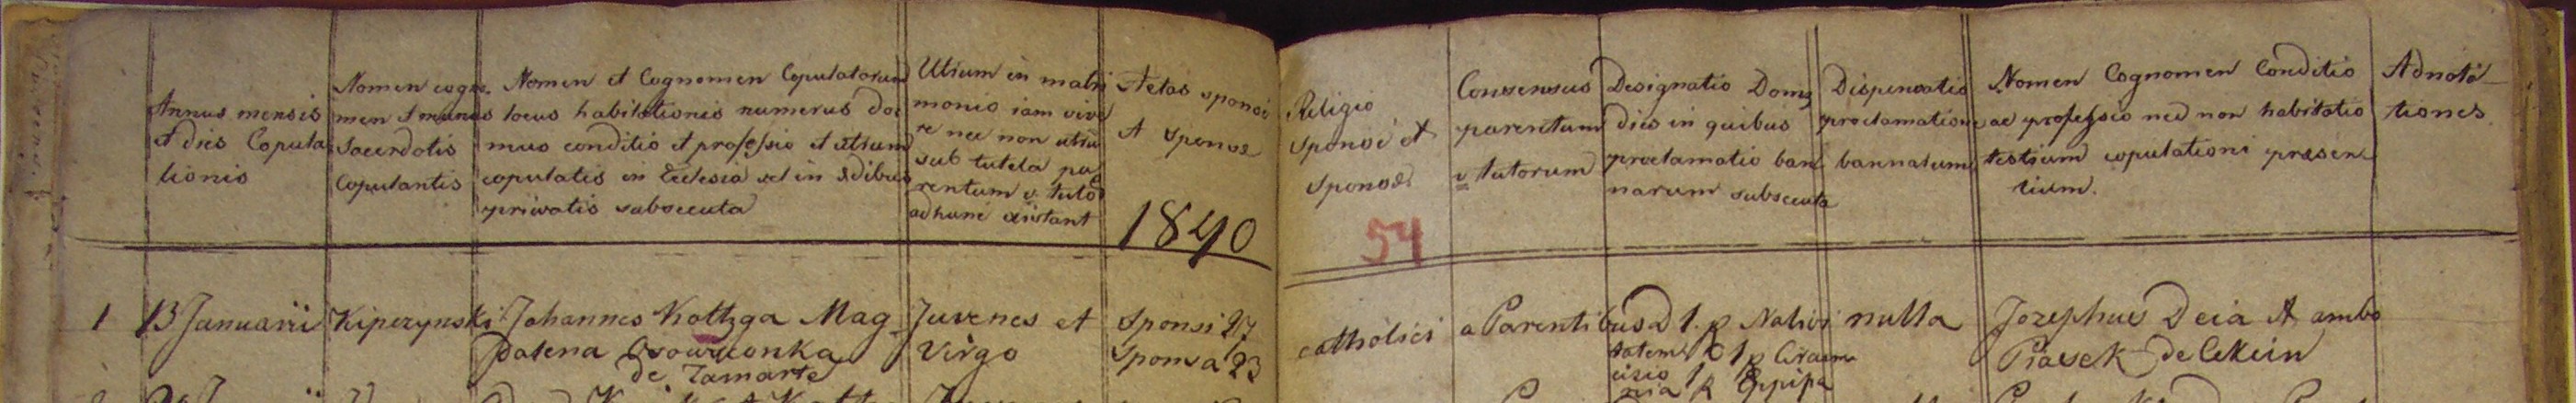 Annus mensis
et dies Copula
tionis
Nomen cogno
men et munus
Sacerdotis
Copulantis
Nomen et Cognomen Copulatorum
locus habitationis numerus do
mus conditio et professio et utrum
copulatis in Ecclesia vel in ædibus
privatis subsecuta
Utrum in matri
monio iam vive
re nec non utrum
sub tutela pa
rentum v. tuto
adhunc existant
Aetas sponsi
et sponsæ
1840
Religio
sponsi et
sponsæ
54
Consensus
parentum
v tutorum
Designatio Doms
dies in quibus
proclamatio ban
narum subsecuta
Dispensatio
proclamatione
bannarum
Nomen Cognomen Conditio
ac professio nec non habitatio
testium copulationi præsen
tium.
Adnota
tiones
1 13 Januarii Kiperzynski Johannes Kottzga Mag
dalena Osowiconka
de Zamarte
Juvenes et
Virgo
Sponsi 27
Sponsa 23
catholici a Parentibus D 1. p Nativi
tatem D 1 p Circum
cisio 1 p Epipa
nia
nulla
Jozephus Deia et ambo
Piasek de Cekcin